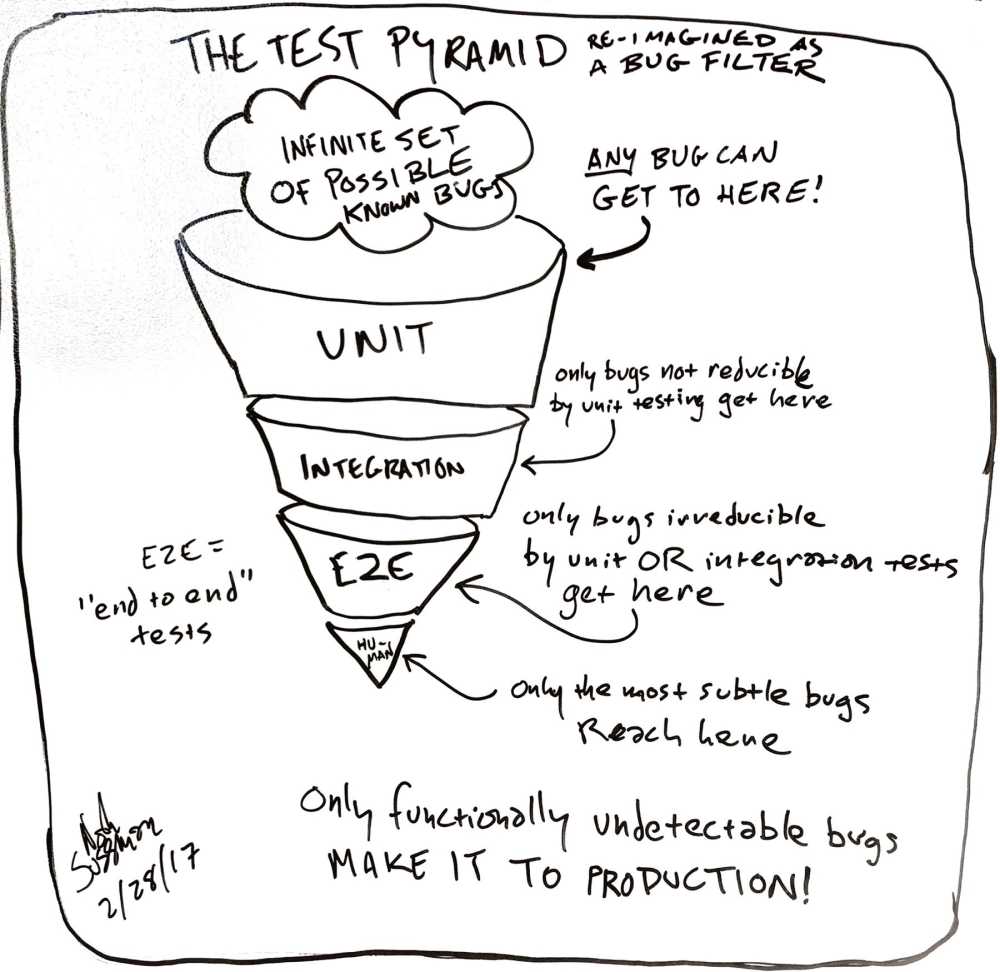 THE TEST PYRAMID RE-IMAGINED AS
A BUG FILTER
INFINITE SET
OF POSSIBLE
KNOWN BUGS
ANY BUG CAN
GET TO HERE!
UNIT
only bugs not reducible
by unit testing get here
INTEGRATION
only bugs irreducible
by unit OR integration tests
get here
E2E
E2E =
"end to end"
tests
HU-
MAN
Only the most subtle bugs
Reach here
Only functionally undetectable bugs
MAKE IT TO PRODUCTION!
Sussman
2/28/17